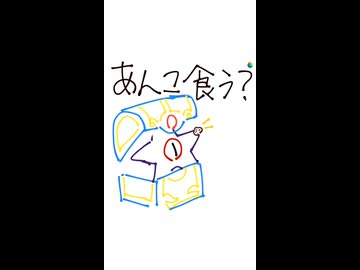 あんこ食う?